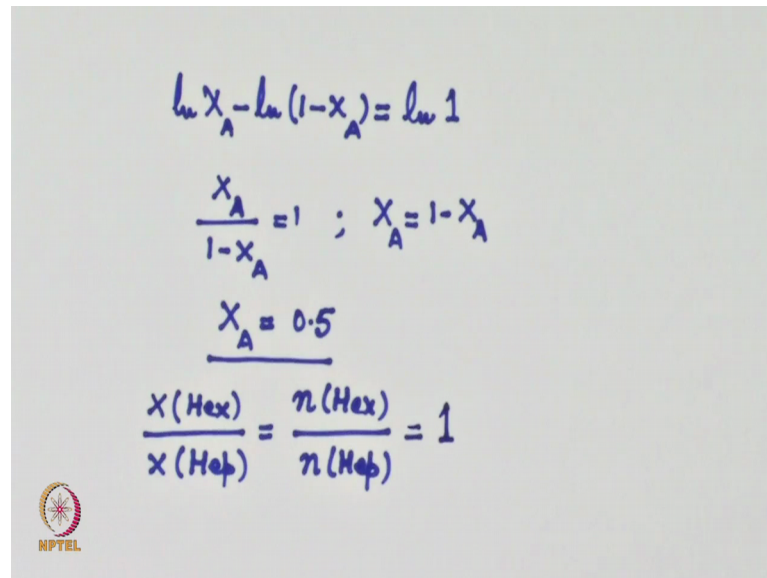 ln X_A - ln (1-X_A) = ln 1
X_A / (1-X_A) = 1 ; X_A = 1-X_A
X_A = 0.5
x(Hex) / x(Hep) = n(Hex) / n(Hep) = 1
NPTEL